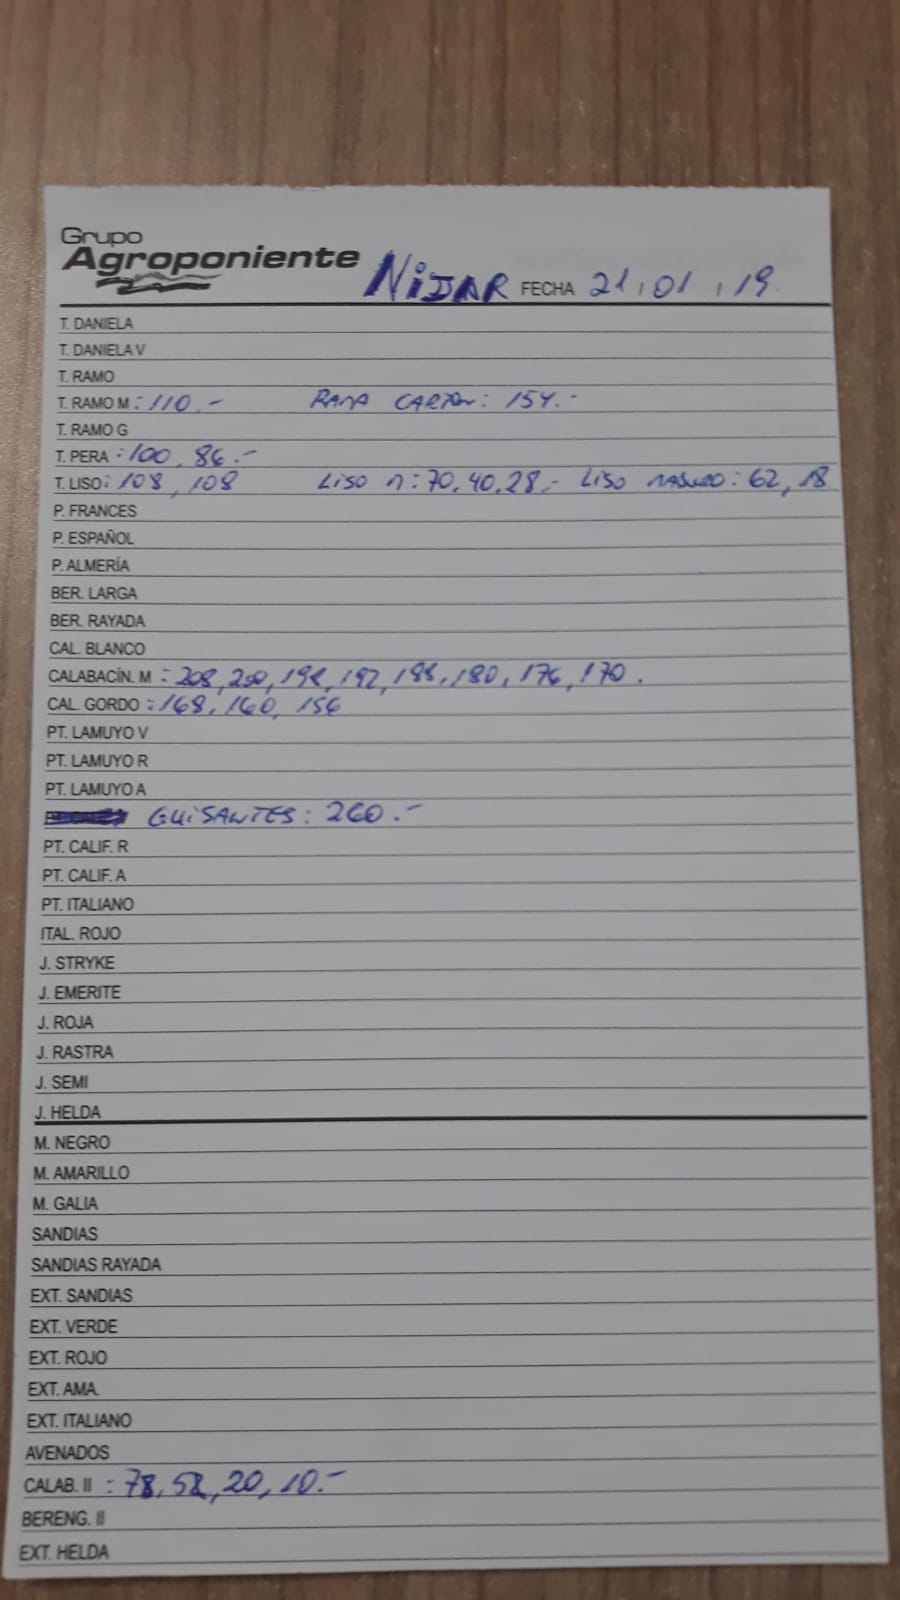 Grupo
Agroponiente NIJAR FECHA 21, 01, 19
T. DANIELA
T. DANIELA V
T. RAMO
T. RAMO M : 110.- RAMA CARTON: 154.-
T. RAMO G
T. PERA : 100, 86.-
T. LISO: 108, 108 LISO M: 70, 40, 28.- LISO MADURO: 62, 18
P. FRANCES
P. ESPAÑOL
P. ALMERÍA
BER. LARGA
BER. RAYADA
CAL. BLANCO
CALABACÍN. M : 208, 200, 198, 192, 188, 180, 176, 170.
CAL. GORDO : 168, 160, 156
PT. LAMUYO V
PT. LAMUYO R
PT. LAMUYO A
GUISANTES: 260.-
PT. CALIF. R
PT. CALIF. A
PT. ITALIANO
ITAL. ROJO
J. STRYKE
J. EMERITE
J. ROJA
J. RASTRA
J. SEMI
J. HELDA
M. NEGRO
M. AMARILLO
M. GALIA
SANDIAS
SANDIAS RAYADA
EXT. SANDIAS
EXT. VERDE
EXT. ROJO
EXT. AMA.
EXT. ITALIANO
AVENADOS
CALAB. II : 78, 58, 20, 10.-
BERENG. II
EXT. HELDA